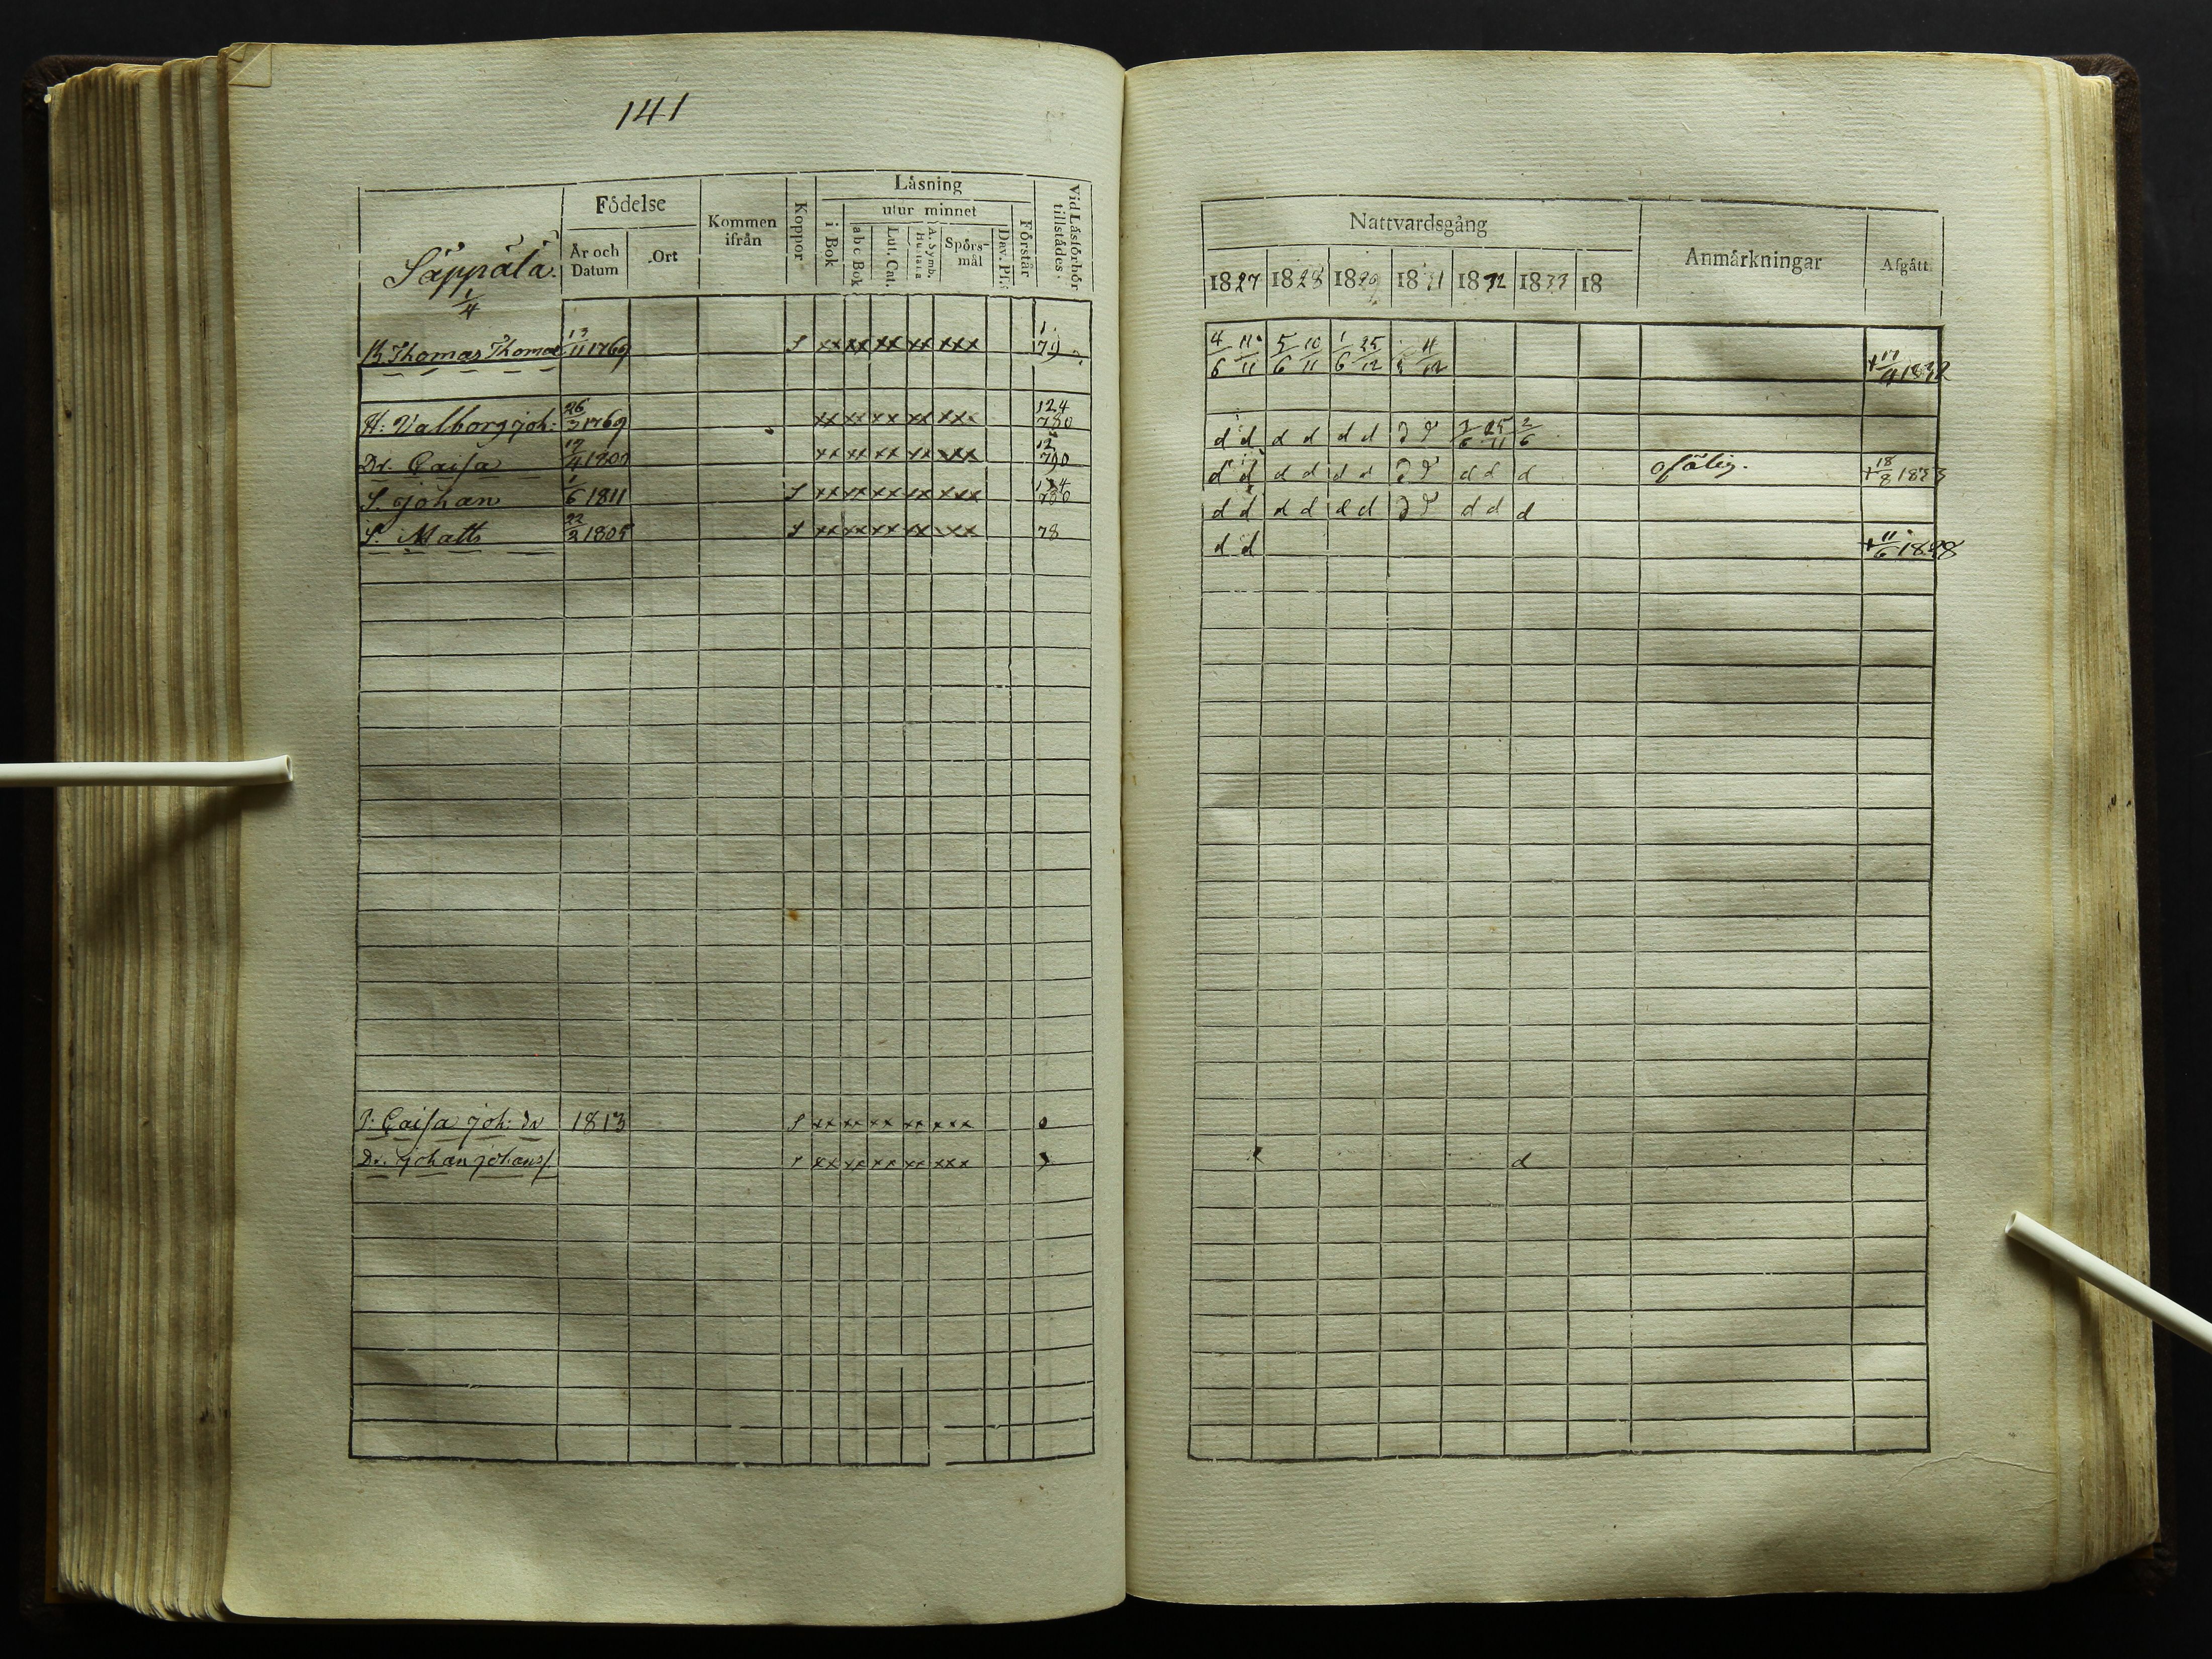 141
Säppälä.
1/4
Födelse
År och Datum
Ort
Kommen ifrån
Koppor
Läsning
i Bok
utur minnet
abc Bok
Lut. Cat.
A. Symb. Hustafla
Spörsmål
Dav. Ps.
Förstår
Vid Läsförhör tillstädes.
B. Thomas Thomas 13/11 1769 S xx xx xx xx xxx 1. 79
H: Valborg Joh: 26/3 1769 xx xx xx xx xxx 124 780
Dr. Caisa 12/4 1800 xx xx xx xx xxx 12 790
S. Johan 1/6 1811 S xx xx xx xx xxx 124 780
S. Matts 22/2 1805 S xx xx xx xx xxx 78
P. Caisa Joh: dr 1813 S xx xx xx xx xxx
Dr. Johan Johans. xx xx xx xx xxx
Nattvardsgång
Anmärkningar
Afgått
1827 1828 1829 1831 1832 1833 18
4/6 11/11 5/6 10/11 1/6 25/12 4/12 + 17/4 1832
d d d d d d d d 25/11 2/6
d d d d d d d d d d d ofälig. + 18/8 1833
d d d d d d d d d d d
d d + 11/6 1828
d